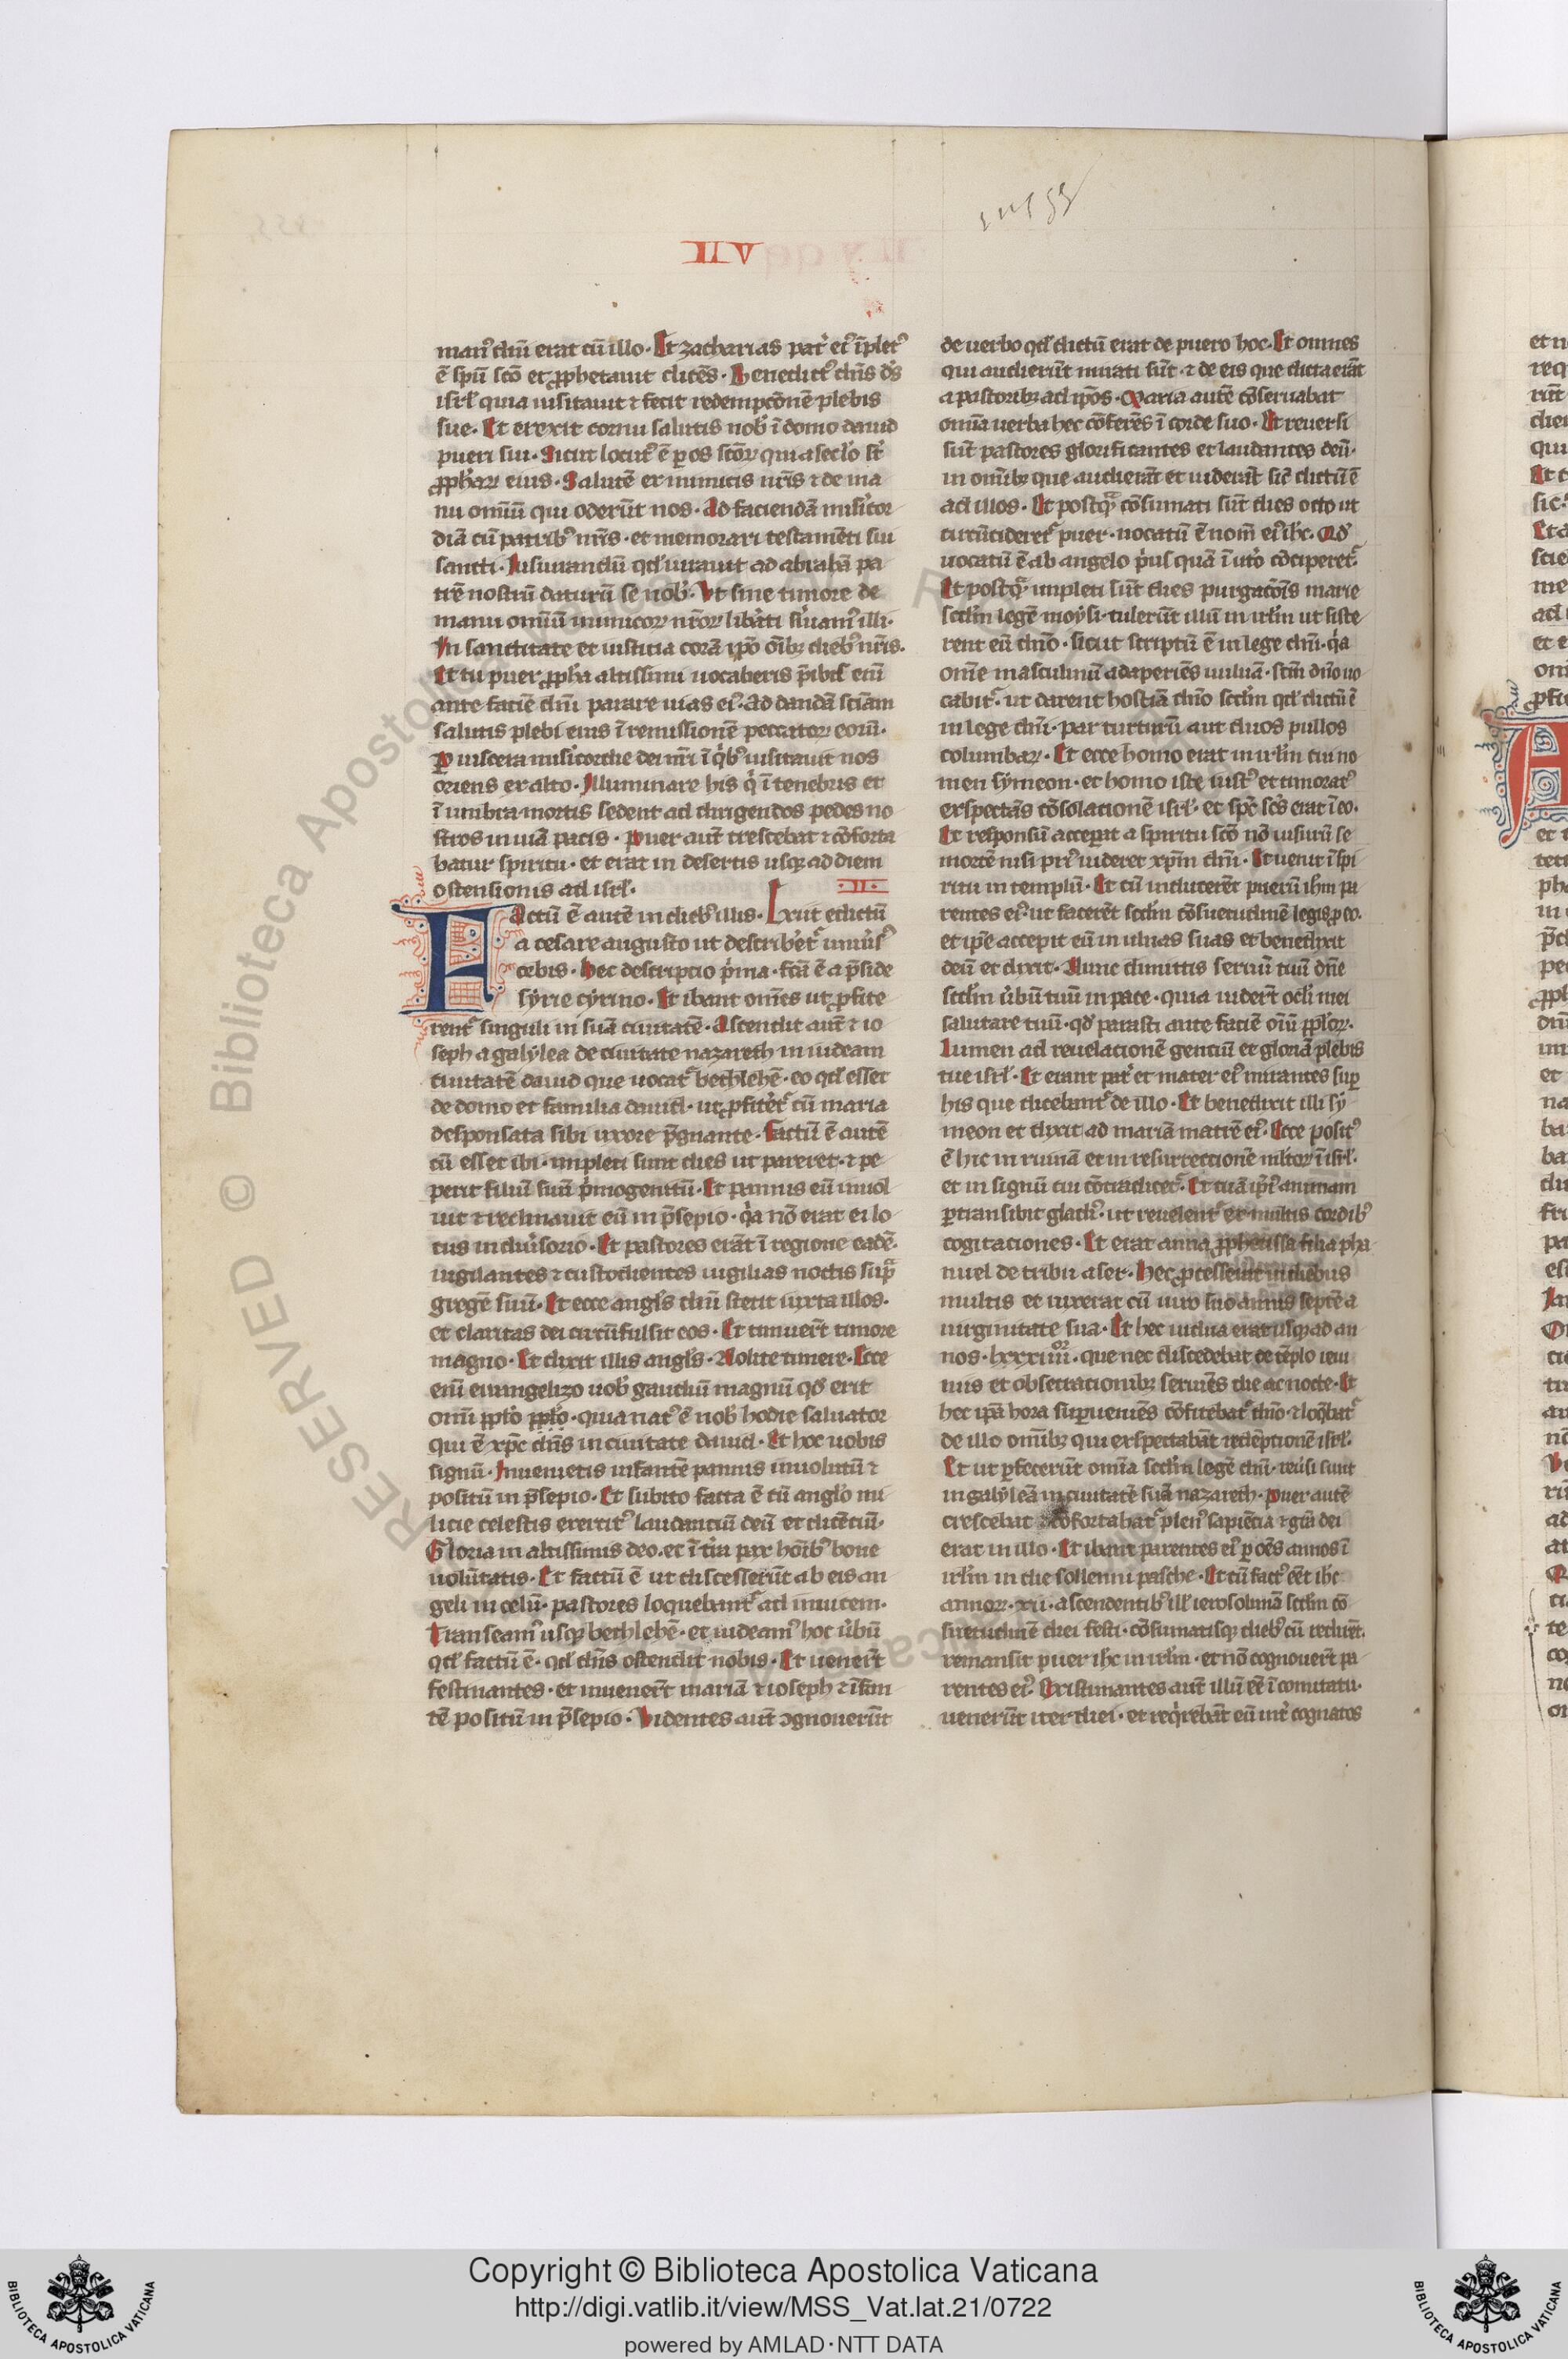 man᷒ dn̄i erat cū illo · Et zacharias pat᷒ ei᷒ īplet᷒
ē spū scō et ꝓphetauit dicēs · Benedict᷒ dn̄s d's
isrl' quia uisitauit ⁊ fecit redempcōnē plebis
sue · Et erexit cornu salutis nob' ī domo dauid
pueri sui · Sicut locut᷒ ē ꝑ os scōꝝ qui a sec'lo st'
ꝓph'aꝝ eius · Salutē ex inimicis nr̄is ⁊ de ma
nu om̄iū qui oderūt nos · Ad faciendā misi'cor
diā cū patrib᷒ nr̄is · et memorari testamēti sui
sancti · Iusiurandū qd' iurauit ad abrahā pa
trē nostrū daturū se nob' · Vt sine timore de
manu om̄iū inimicoꝝ nr̄oꝝ lib'ati s'uiam᷒ illi ·
In sanctitate et iusticia corā ip̄o oīb; dieb᷒ nr̄is ·
Et tu puer ꝓph'a altissimi uocaberis p̄ibis eni
ante faciē dn̄i parare uias ei᷒ · Ad dandā sciām
salutis plebi eius ī remissionē peccatoꝝ eorū ·
Ꝑ uiscera misi'cordie dei nr̄i ī q'b᷒ uisitauit nos
oriens ex alto · Illuminare his q' ī tenebris et
ī umbra mortis sedent ad dirigendos pedes no
stros in uiā pacis · Puer aut̄ crescebat ⁊ cōforta
batur spiritu · et erat in desertis usq; ad diem
ostensionis ad isrl' · ·II·
Factū ē autē in dieb᷒ illis · Exiit edictū
a cesare augusto ut describ'et᷒ uniu's᷒
orbis · Hec descripcio p'ma · fc̄a ē a p̄side
syrie cyrino · Et ibant om̄es ut ꝓfite
rent᷒ singuli in suā ciuitatē · Ascendit aut̄ ⁊ io
seph a galylea de ciuitate nazareth in iudeam
ciuitatē dauid que uocat᷒ bethlehē · eo qd' esset
de domo et familia dauid · ut ꝓfit'et᷒ cū maria
desponsata sibi uxore p̄gnante · Factū ē autē
cū esset ibi · impleti sunt dies ut pareret · ⁊ pe
perit filiū suū p'mogenitū · Et pannis eū inuol
uit ⁊ reclinauit eū in p̄sepio · q'a nō erat ei lo
cus in diu'sorio · Et pastores erāt ī regione eadē ·
uigilantes ⁊ custodientes uigilias noctis sup̄
gregē suū · Et ecce angl's dn̄i stetit iuxta illos ·
et claritas dei circūfulsit eos · Et timuer̄t timore
magno · Et dixit illis angl's · Nolite timere · Ecce
eni euuangelizo uob' gaudiū magnū qd' erit
omi pp̄lo pp̄lo · quia nat᷒ ē nob' hodie saluator
qui ē xp̄c dn̄s in ciuitate dauid · Et hoc uobis
signū · Inuenietis infantē pannis inuolutū ⁊
positū in p̄sepio · Et subito facta ē cū anglo mi
licie celestis exercit᷒ laudanciū deū et dicēciū ·
Gloria in altissimis deo · et ī t'ra pax hoīb᷒ bone
uolūtatis · Et factū ē ut discesserūt ab eis an
geli in celū · pastores loquebant᷒ ad inuicem ·
Transeam᷒ usq; bethlehē · et uideam᷒ hoc u'bū
qd' factū ē · qd' dn̄s ostendit nobis · Et uener̄t
festinantes · et inuener̄t mariā ⁊ ioseph ⁊ īfan
tē positū in p̄sepio · Videntes aut̄ ↄgnouerūt
de uerbo qd' dictū erat de puero hoc · Et omnes
qui audierūt mirati sūt · ⁊ de eis que dicta erāt
a pastorib; ad ip̄os · Maria autē cōseruabat
omīa uerba hec cōferēs ī corde suo · Et reuersi
sūt pastores glorificantes et laudantes deū ·
in omīb; que audierāt et uiderāt sic̄ dictū ē
ad illos · Et postq̄ cōsumati sūt dies octo ut
circūcideret᷒ puer · uocatū ē nom̄ ei᷒ ih'c · Qd'
uocatū ē ab angelo p'us quā ī ut'o cōciperet᷒
Et postq̄ impleti sūt dies purgac̄ōis marie
scd'm legē moysi · tulerūt illū in irl'm ut siste
rent eū dn̄o · sicut scriptū ē in lege dn̄i · q'a
om̄e masculinū adaperiēs uuluā · sc̄m dn̄o uo
cabit᷒ · ut darent hostiā dn̄o scd'm qd' dictū ē
in lege dn̄i · par turturū aut duos pullos
columbaꝝ · Et ecce homo erat in irl'm cui no
men symeon · et homo iste iust᷒ et timorat᷒
exspectās cōsolacionē isrl' · et sp̄c scs̄ erat ī eo ·
Et responsū acceperat a spiritu scō nō uisurū se
mortē nisi pri᷒ uideret xp̄m dn̄i · Et uenit ī spi
ritu in templū · Et cū inducerēt puerū ih'm pa
rentes ei᷒ · ut facerēt scd'm cōsuetudinē legis ꝓ eo ·
et ip̄e accepit eū in ulnas suas et benedixit
deū et dixit · Nunc dimittis seruū tuū dn̄e
scd'm u'bū tuū in pace · quia uider̄t ocl'i mei
salutare tuū · qd' parasti ante faciē oīū pp̄loꝝ ·
Lumen ad reuelacionē genciū et gloriā plebis
tue isrl' · Et erant pat' et mater ei᷒ mirantes sup
his que dicebant᷒ de illo · Et benedixit illi sy
meon et dixit ad mariā matrē ei᷒ · Ecce posit᷒
ē hic in ruinā et in resurrectionē mltoꝝ ī isrl' ·
et in signū cui cōtradicet᷒ · Et tuā ip̄i᷒ animam
ꝑtransibit gladi᷒ · ut reuelent᷒ ex multis cordib᷒
cogitaciones · Et erat anna ꝓphetissa filia pha
nuel de tribu aser · Hec ꝓcesserat in diebus
multis et uixerat cū uiro suo annis septē a
uirginitate sua · Et hec uidua erat usq; ad an
nos · lxxxiiii · que nec discedebat de tēplo ieiu
niis et obsecracionib; seruiēs die ac nocte · Et
hec ip̄a hora superueniēs cōfitebat᷒ dn̄o · ⁊ loq̄bat᷒
de illo omīb; qui exspectabāt redēptionē isrl' ·
Et ut ꝑfecerūt om̄ia scd'm legē dn̄i · reu'si sunt
in galyleā in ciuitatē suā nazareth · Puer autē
crescebat ⁊ cōfortabat᷒ plen᷒ sapiēcia ⁊ gr̄a dei
erat in illo · Et ibant parentes ei᷒ ꝑ oēs annos ī
irl'm in die sollenni pasche · Et cū fact᷒ eēt ih'c
annoꝝ · xii · ascendentib᷒ ill' ierosolimā scd'm cō
suetudinē diei festi · cōsumatisq; dieb᷒ cū redirēt ·
remansit puer ih'c in irl'm · et nō cognouer̄t pa
rentes ei᷒ · Existimantes aut̄ illū eē ī comitatu ·
uenerūt iter diei · et req'rebāt eū int' cognatos
Copyright © Biblioteca Apostolica Vaticana
http://digi.vatlib.it/view/MSS_Vat.lat.21/0722
powered by AMLAD·NTT DATA